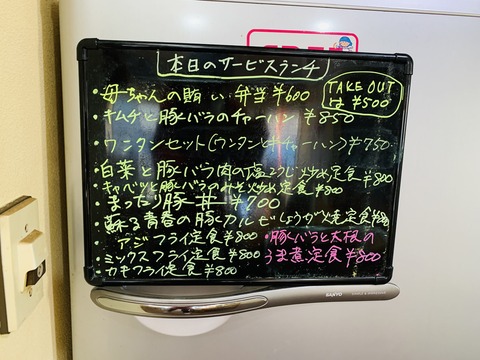 本日のサービスランチ
TAKE OUT
は ¥500
・母ちゃんの賄い弁当 ¥600
・キムチと豚バラのチャーハン ¥850
・ワンタンセット(ワンタンと半チャーハン) ¥750
・白菜と豚バラ肉の塩こうじ炒め定食 ¥800
・キャベツと豚バラのみそ炒め定食 ¥800
・まったり豚丼 ¥700
・蘇る青春の豚カルビしょうが焼定食 ¥800
・アジフライ定食 ¥800
・ミックスフライ定食 ¥800
・カキフライ定食 ¥800
・豚バラと大根の
うま煮定食 ¥800
SANYO